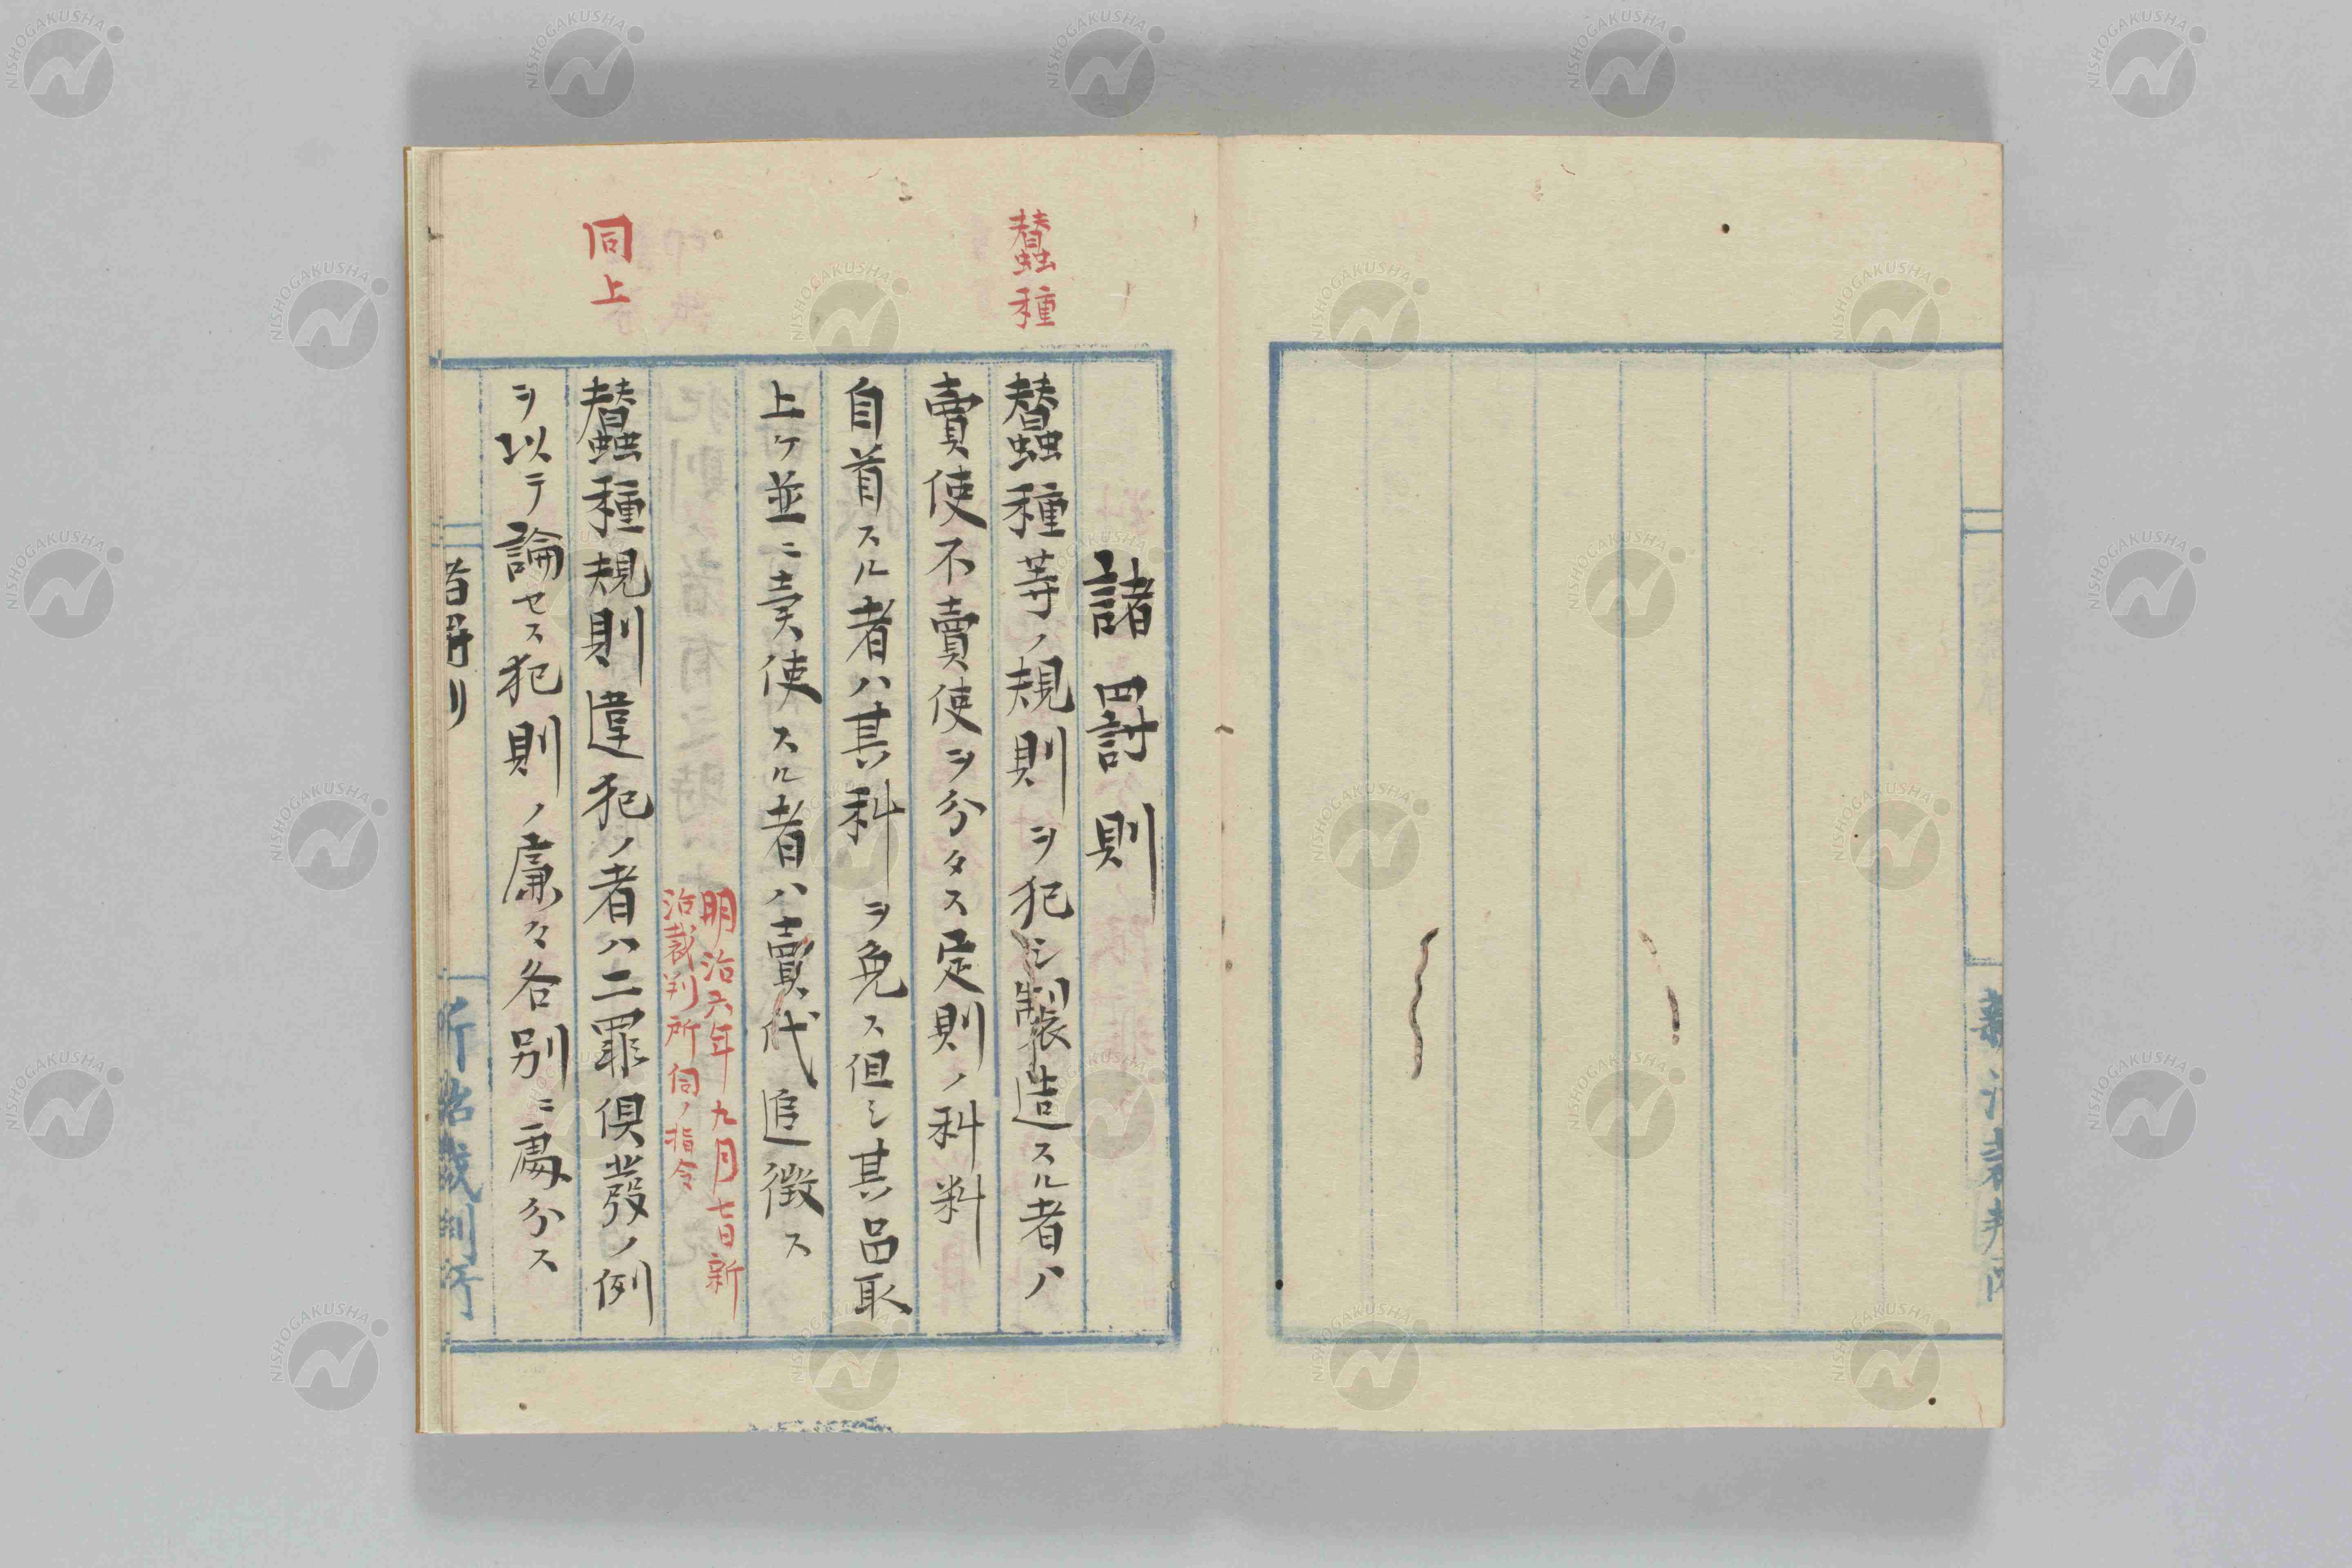 諸罰則
蠶種
蠶種等ノ規則ヲ犯シ製造スル者ハ
賣使不賣使ヲ分タス定則ノ科料
自首スル者ハ其科ヲ免ス但シ其品取
上ケ並ニ売使スル者ハ賣代追徴ス
明治六年九月七日新
治裁判所伺ノ指令
同上
蠶種規則違犯ノ者ハ二罪倶發ノ例
ヲ以テ論セス犯則ノ廉々各別ニ處分ス
新治裁判所
NISHOGAKUSHA